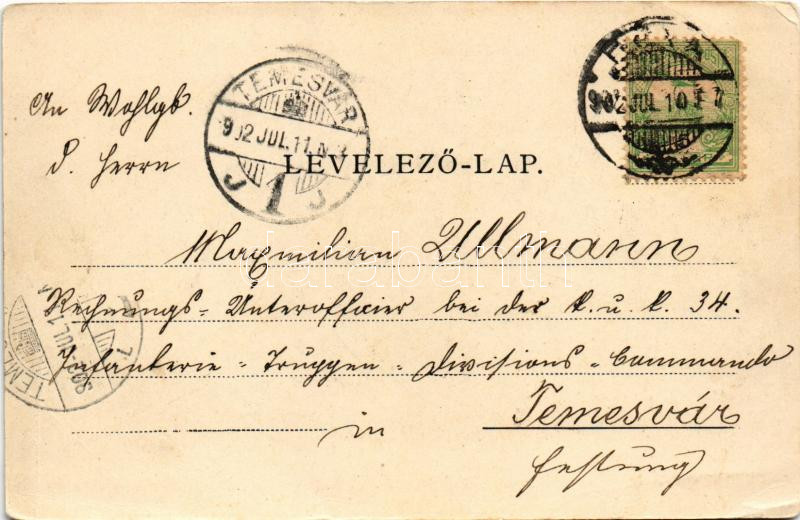 TEMESVÁR
902 JUL. 11.
J 1 J
902 JUL. 10
An Wohlgb.
d. Herrn
LEVELEZŐ-LAP.
Maxmilian Ullmann
Rechnungs-Unterofficier bei der k. u. k. 34.
Infanterie-Truppen-Divisions-Commando
in Temesvár
Festung
darabanth